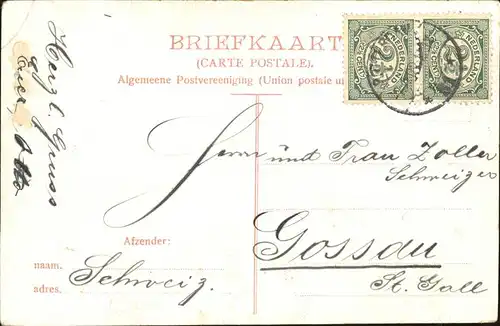 BRIEFKAART
(CARTE POSTALE).
Algemeene Postvereeniging (Union postale u
NEDERLAND
NEDERLAND
Herzl. Gruss
Euer Otto
Herrn und Frau Zoller
Schweizer
Gossau
St. Gall
Afzender:
naam.
adres.
Schweiz.